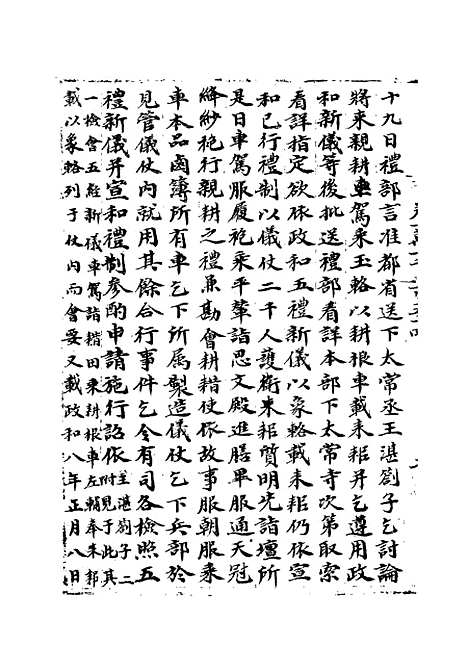 十九日禮部言准都省送下太常丞王湛劄子乞討論
將来親耕車駕乘玉輅以耕根車載耒耜并乞遵用政
和新儀等後批送禮部看詳本部下太常寺次第取索
看詳指定欲依政和五禮新儀以象輅載耒耜仍依宣
和已行禮制以儀仗二千人護衛耒耜質明先詣壇所
是日車駕服履袍乘平輦詣思文殿進膳畢服通天冠
絳紗袍行親耕之禮兼勘會耕耤使依故事服朝服乘
車本品鹵簿所有車乞下所属製造儀仗乞下兵部於
見管儀仗内就用其餘合行事件乞令有司各檢照五
禮新儀并宣和禮制參酌申請施行詔依王湛劄子二附見于此其
一檢會五經新儀車駕詣耤田乘耕根車左輔奉耒耜
載以象輅列于仗内而會要又載政和八年正月八日